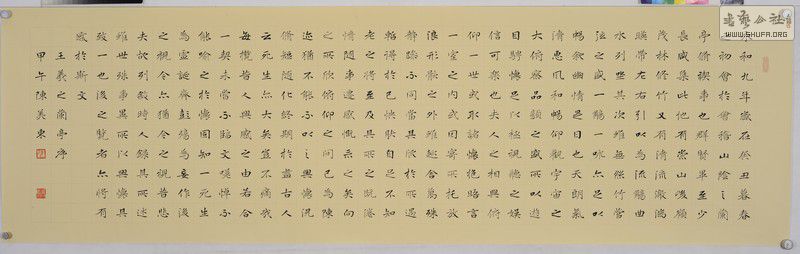 書藝公社
WWW.SHUFA.ORG
和九年歲在癸丑暮春
初會於會稽山陰之蘭
亭脩禊事也群賢畢至少
長咸集此地有崇山峻領
茂林修竹又有清流激湍
暎帶左右引以為流觴曲
水列坐其次雖無絲竹管
弦之盛一觴一詠亦足以
暢敘幽情是日也天朗氣
清惠風和暢仰觀宇宙之
大俯察品類之盛所以遊
目騁懷足以極視聽之娛
信可樂也夫人之相與俯
仰一世或取諸懷抱晤言
一室之內或因寄所托放
浪形骸之外雖趣舍萬殊
靜躁不同當其欣於所遇
暫得於己快然自足不知
老之將至及其所之既倦
情隨事遷感慨係之矣向
之所欣俛仰之間已為陳
迹猶不能不以之興懷況
脩短隨化終期於盡古人
云死生亦大矣豈不痛哉
每覽昔人興感之由若合
一契未嘗不臨文嗟悼不
能喻之於懷固知一死生
為虛誕齊彭殤為妄作後
之視今亦猶今之視昔悲
夫故列敘時人錄其所述
雖世殊事異所以興懷其
致一也後之覽者亦將有
感於斯文
王羲之蘭亭序
甲午陳英東